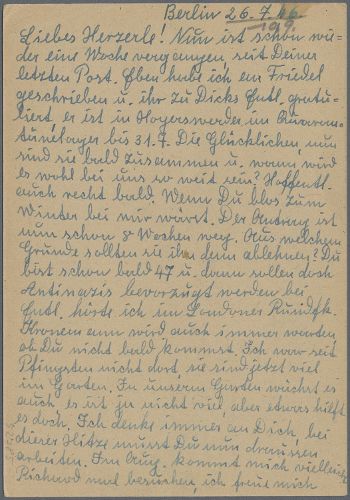 Berlin 26.7.46.
199
Liebes Herzerle! Nun ist schon wie-
der eine Woche vergangen, seit Deiner
letzten Post. Eben habe ich an Friedel
geschrieben u. ihr zu Dicks Entl. gratu-
liert, er ist in Hoyerswerda im Quaran-
tänelager bis 31.7. Die Glücklichen, nun
sind sie bald zusammen u. wann wird
es wohl bei uns so weit sein? Hoffentl.
auch recht bald. Wenn Du blos zum
Winter bei mir wärst. Der Antrag ist
nun schon 8 Wochen weg. Aus welchem
Grunde sollten sie ihn denn ablehnen? Du
bist schon bald 47 u. dann sollen doch
Antinazis bevorzugt werden bei
Entl. hörte ich im Londoner Rundfk.
Kronemann wird auch immer warten,
ob Du nicht bald kommst. Ich war seit
Pfingsten nicht dort, sie sind jetzt viel
im Garten. In unserm Garten wächst es
auch, es ist ja nicht viel, aber etwas hilft
es doch. Ich denke immer an Dich, bei
dieser Hitze musst Du nun draussen
arbeiten. Im Aug. kommt mich vielleicht
Richard mal besuchen, ich freue mich